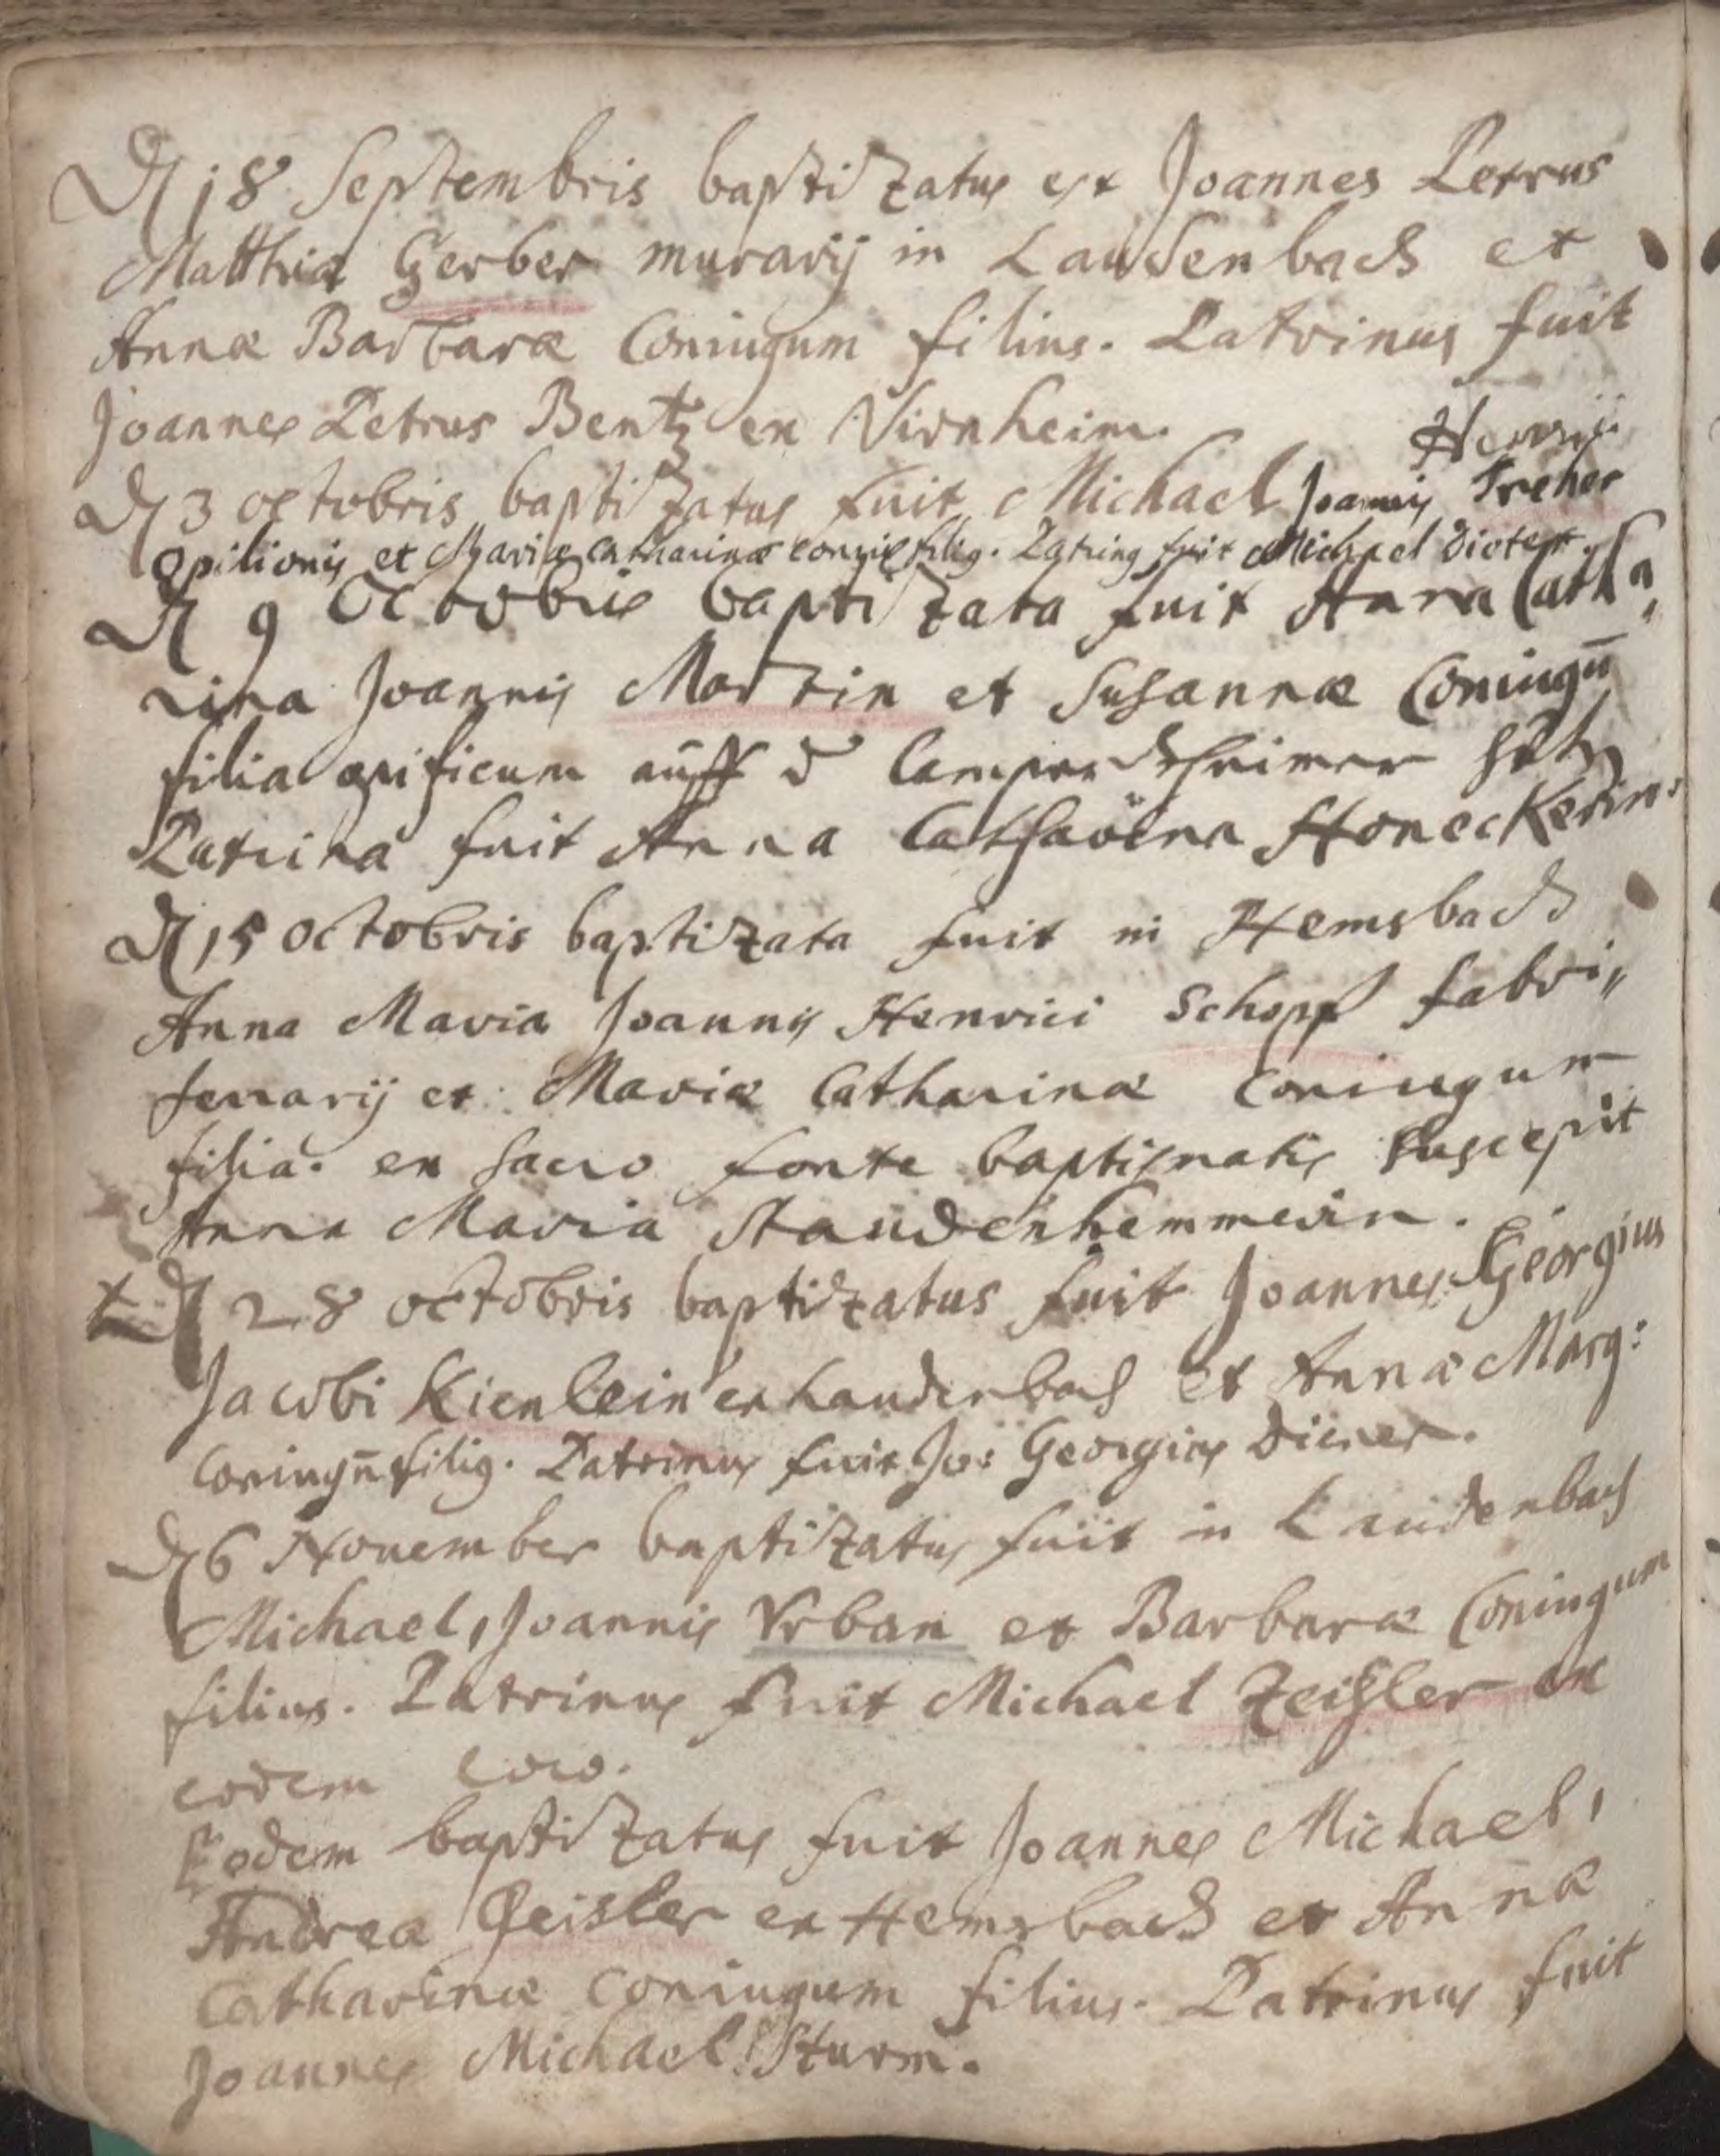 D 18 Septembris baptizatus est Joannes Petrus
Matthiæ Gerber murarij in Laudenbach et
Annæ Barbaræ Coniugum filius. Patrinus fuit
Joannes Petrus Bentz ex Virnheim.
D 3 octobris baptizatus fuit Michael Joannis Henrici Treher
opilionis et Mariæ Catharinæ coniug filig. Patring fuit Michael Dieter.
D 9 Octobris baptizata fuit Anna Catha„
rina Joannis Martin et Susannæ Coniugū
filia opificum auff d Lampertsheimer
Patrina fuit Anna Catharina Honeckerin.
D 15 octobris baptizata fuit in Hemsbach
Anna Maria Joannis Henrici Schopf fabri„
ferrarij et Mariæ Catharinæ Coniugum
filia. ex sacro fonte baptismatis suscepit
Anna Maria Staudenhemmerin.
D 28 octobris baptizatus fuit Joannes Georgius
Jacobi Kienlein ex Laudenbach et Annæ Marg:
Coniugū filig. Patrinus fuit Jo: Georgius Diener.
D 6 Nouember baptizatus fuit in Laudenbach
Michael, Joannis Vrban et Barbaræ Coniugum
filius. Patrinus fuit Michael Zeißler ex
eodem loco.
Eodem baptizatus fuit Joannes Michael,
Andreæ Geisler ex Hemsbach et Annæ
Catharinæ Coniugum filius. Patrinus fuit
Joannes Michael Sturm.